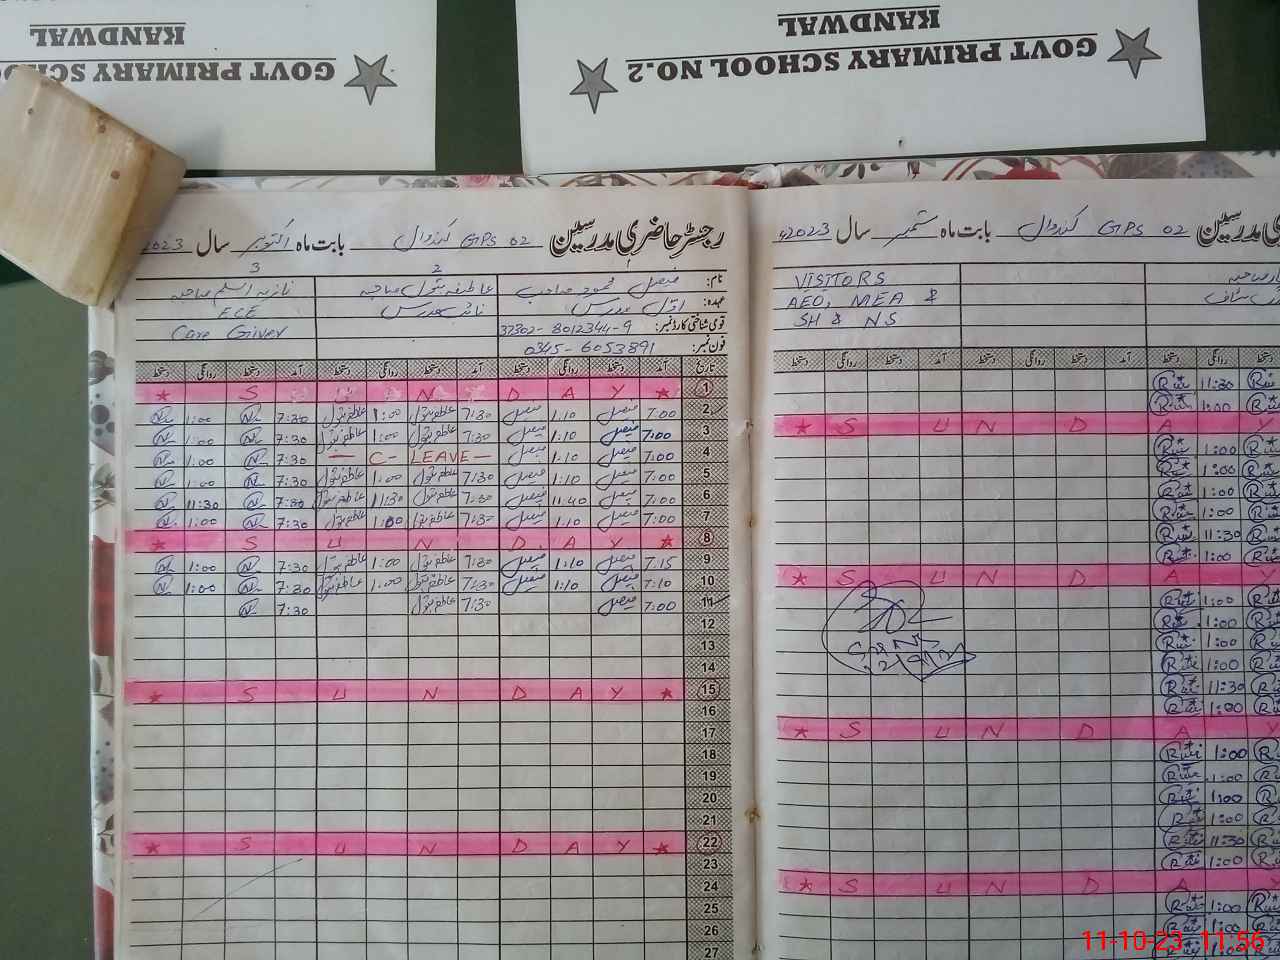 GOVT PRIMARY SCHOOL NO.2
KANDWAL
GOVT PRIMARY SCHOO
KANDWAL
رجسٹر حاضری مدرسین GPS 02 کندوال بابت ماہ اکتوبر سال 2023
1 2 3
نام: فیصل محمود صاحب عاطفہ بتول صاحبہ نازیہ اسلم صاحبہ
عہدہ: اوّل مدرس نائب مدرس ECE
قومی شناختی کارڈ نمبر: 37302-8012344-9 Care Giver
فون نمبر: 0345-6053891
تاریخ آمد دستخط روانگی دستخط آمد دستخط روانگی دستخط آمد دستخط روانگی دستخط
1 ★ S U N D A Y ★
2 7:00 فیصل 1:10 فیصل 7:30 عاطفہ بتول 1:00 عاطفہ بتول 7:30 1:00
3 7:00 فیصل 1:10 فیصل 7:30 عاطفہ بتول 1:00 عاطفہ بتول 7:30 1:00
4 7:00 فیصل 1:10 فیصل — C - LEAVE — 7:30 1:00
5 7:00 فیصل 1:10 فیصل 7:30 عاطفہ بتول 1:00 عاطفہ بتول 7:30 1:00
6 7:00 فیصل 11:40 فیصل 7:30 عاطفہ بتول 11:30 عاطفہ بتول 7:30 11:30
7 7:00 فیصل 1:10 فیصل 7:30 عاطفہ بتول 1:00 عاطفہ بتول 7:30 1:00
8 ★ S U N D A Y ★
9 7:15 فیصل 1:10 فیصل 7:30 عاطفہ بتول 1:00 عاطفہ بتول 7:30 1:00
10 7:10 فیصل 1:10 فیصل 7:30 عاطفہ بتول 1:00 عاطفہ بتول 7:30 1:00
11 7:00 فیصل 7:30 عاطفہ بتول 7:30
12
13
14
15 ★ S U N D A Y ★
16
17
18
19
20
21
22 ★ S U N D A Y ★
23
24
25
26
27
مدرسین GPS 02 کندوال بابت ماہ ستمبر سال 2023
VISITORS
AEO, MEA &
SH & NS
دستخط روانگی دستخط آمد دستخط روانگی دستخط آمد دستخط روانگی دستخط
11:30
1:00
★ S U N D A Y
1:00
1:00
1:00
1:00
11:30
1:00
★ S U N D A Y
1:00
1:00
1:00
1:00
11:30
1:00
★ S U N D A Y
1:00
1:00
1:00
1:00
11:30
1:00
★ S U N D A Y
1:00
1:00
1:00
11-10-23 11:56